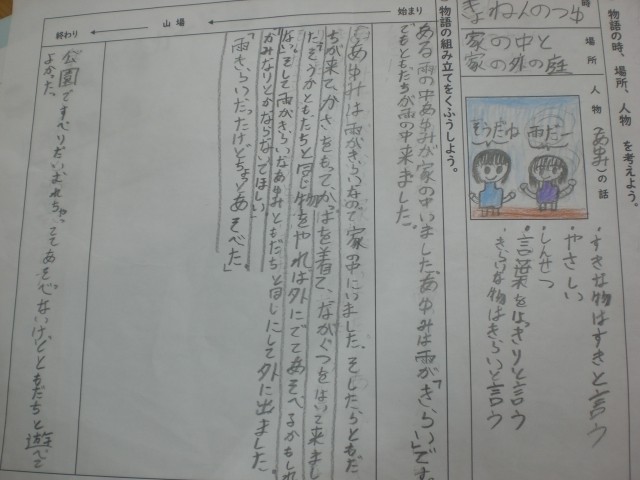 物語の時、場所、人物 を考えよう。
時
きょねんのつゆ
場所
家の中と
家の外の庭
人物 (あゆみ)の話
雨だー
そうだゆ
・すきな物はすきと言う
・やさしい
・しんせつ
・言葉をはっきりと言う
・きらいな物はきらいと言う
物語の組み立てをくふうしよう。
始まり
ある雨の中あゆみが家の中いました。あゆみは雨が「きらい」です。
でもともだちが雨の中来ました。
山場
あゆみは雨がきらいなので家の中にいました。そしたらともだ
ちが来て、かさをもって、かっぱを着て、ながぐつをはいて来まし
た。「そうかともだちと同じ物をやれば外にでてあそべるかもしれ
ない。」そして雨がきらいなあゆみともだちと同じにして外に出ました。
「かみなりとかならないでほしい
「雨きらいだったけどちょっとあそべた。」
終わり
公園ですべりだいぬれちゃってあそべないけどともだちと遊べて
よかった。